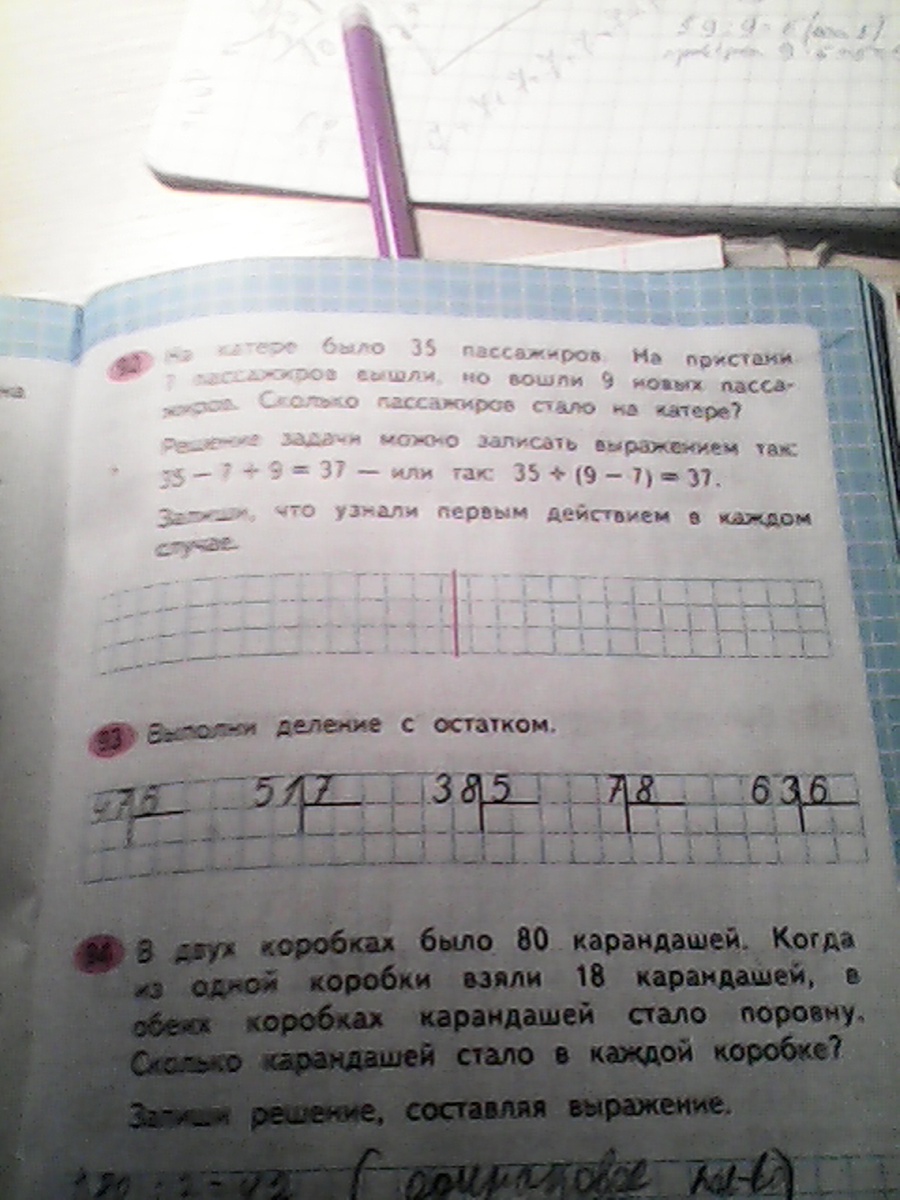 92 На катере было 35 пассажиров. На пристани
7 пассажиров вышли, но вошли 9 новых пасса-
жиров. Сколько пассажиров стало на катере?
Решение задачи можно записать выражением так:
35 − 7 + 9 = 37 — или так: 35 + (9 − 7) = 37.
Запиши, что узнали первым действием в каждом
случае.
93 Выполни деление с остатком.
47 6 51 7 38 5 7 8 63 6
94 В двух коробках было 80 карандашей. Когда
из одной коробки взяли 18 карандашей, в
обеих коробках карандашей стало поровну.
Сколько карандашей стало в каждой коробке?
Запиши решение, составляя выражение.